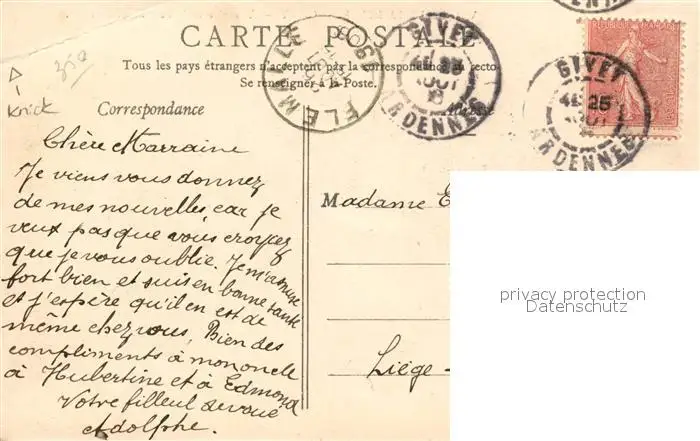 CARTE POSTALE
Tous les pays étrangers n'acceptent pas la correspondance au recto
Se renseigner à la Poste.
Correspondance
FLEMALLE
GIVET
25
AOUT
ARDENNES
GIVET
4E 25
AOUT
ARDENNES
350
Knick
Chère Marraine
Je viens vous donnez
de mes nouvelles, car je
veux pas que vous croyiez
que je vous oublie. Je m'amuse
fort bien et suis en bonne santé
et j'espère qu'il en est de
même chez vous. Bien des
compliments à mononcle
à Hubertine et à Edmond
Votre filleul dévoué
Adolphe.
Madame
Liège
privacy protection
Datenschutz